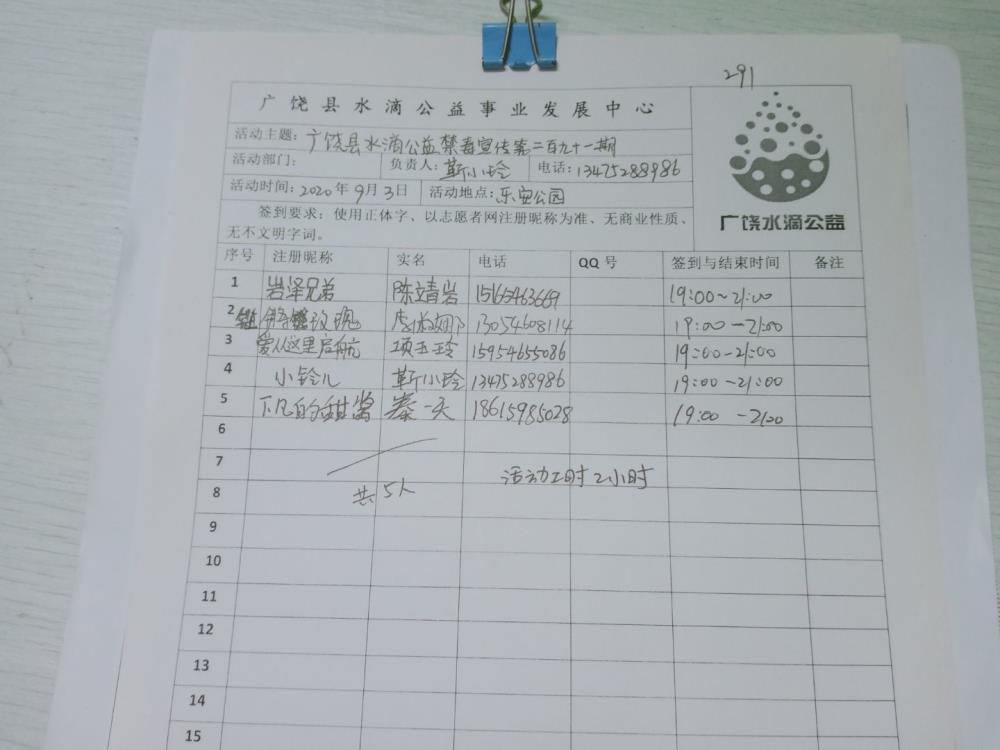 291
广饶县水滴公益事业发展中心
活动主题：广饶县水滴公益禁毒宣传第二百九十一期
活动部门： 负责人：靳小玲 电话：13475288986
活动时间：2020年9月3日 活动地点：乐安公园
签到要求：使用正体字、以志愿者网注册昵称为准、无商业性质、
无不文明字词。
广饶水滴公益
序号 注册昵称 实名 电话 QQ号 签到与结束时间 备注
1 岩泽兄弟 陈靖岩 15165463669 19:00~21:00
2 玫瑰 13054608114 19:00-21:00
3 爱从这里启航 项玉玲 15954655086 19:00-21:00
4 小铃儿 靳小玲 13475288986 19:00-21:00
5 下凡的甜酱 秦一天 18615985028 19:00-21:00
6
7 活动工时2小时
8 共5人
9
10
11
12
13
14
15